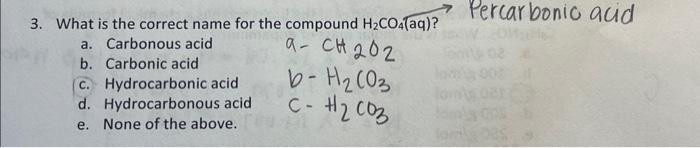 Percarbonic acid
3. What is the correct name for the compound H₂CO₄(aq)?
a. Carbonous acid
a- CH2O2
b. Carbonic acid
b- H2CO3
c. Hydrocarbonic acid
c- H2CO3
d. Hydrocarbonous acid
e. None of the above.